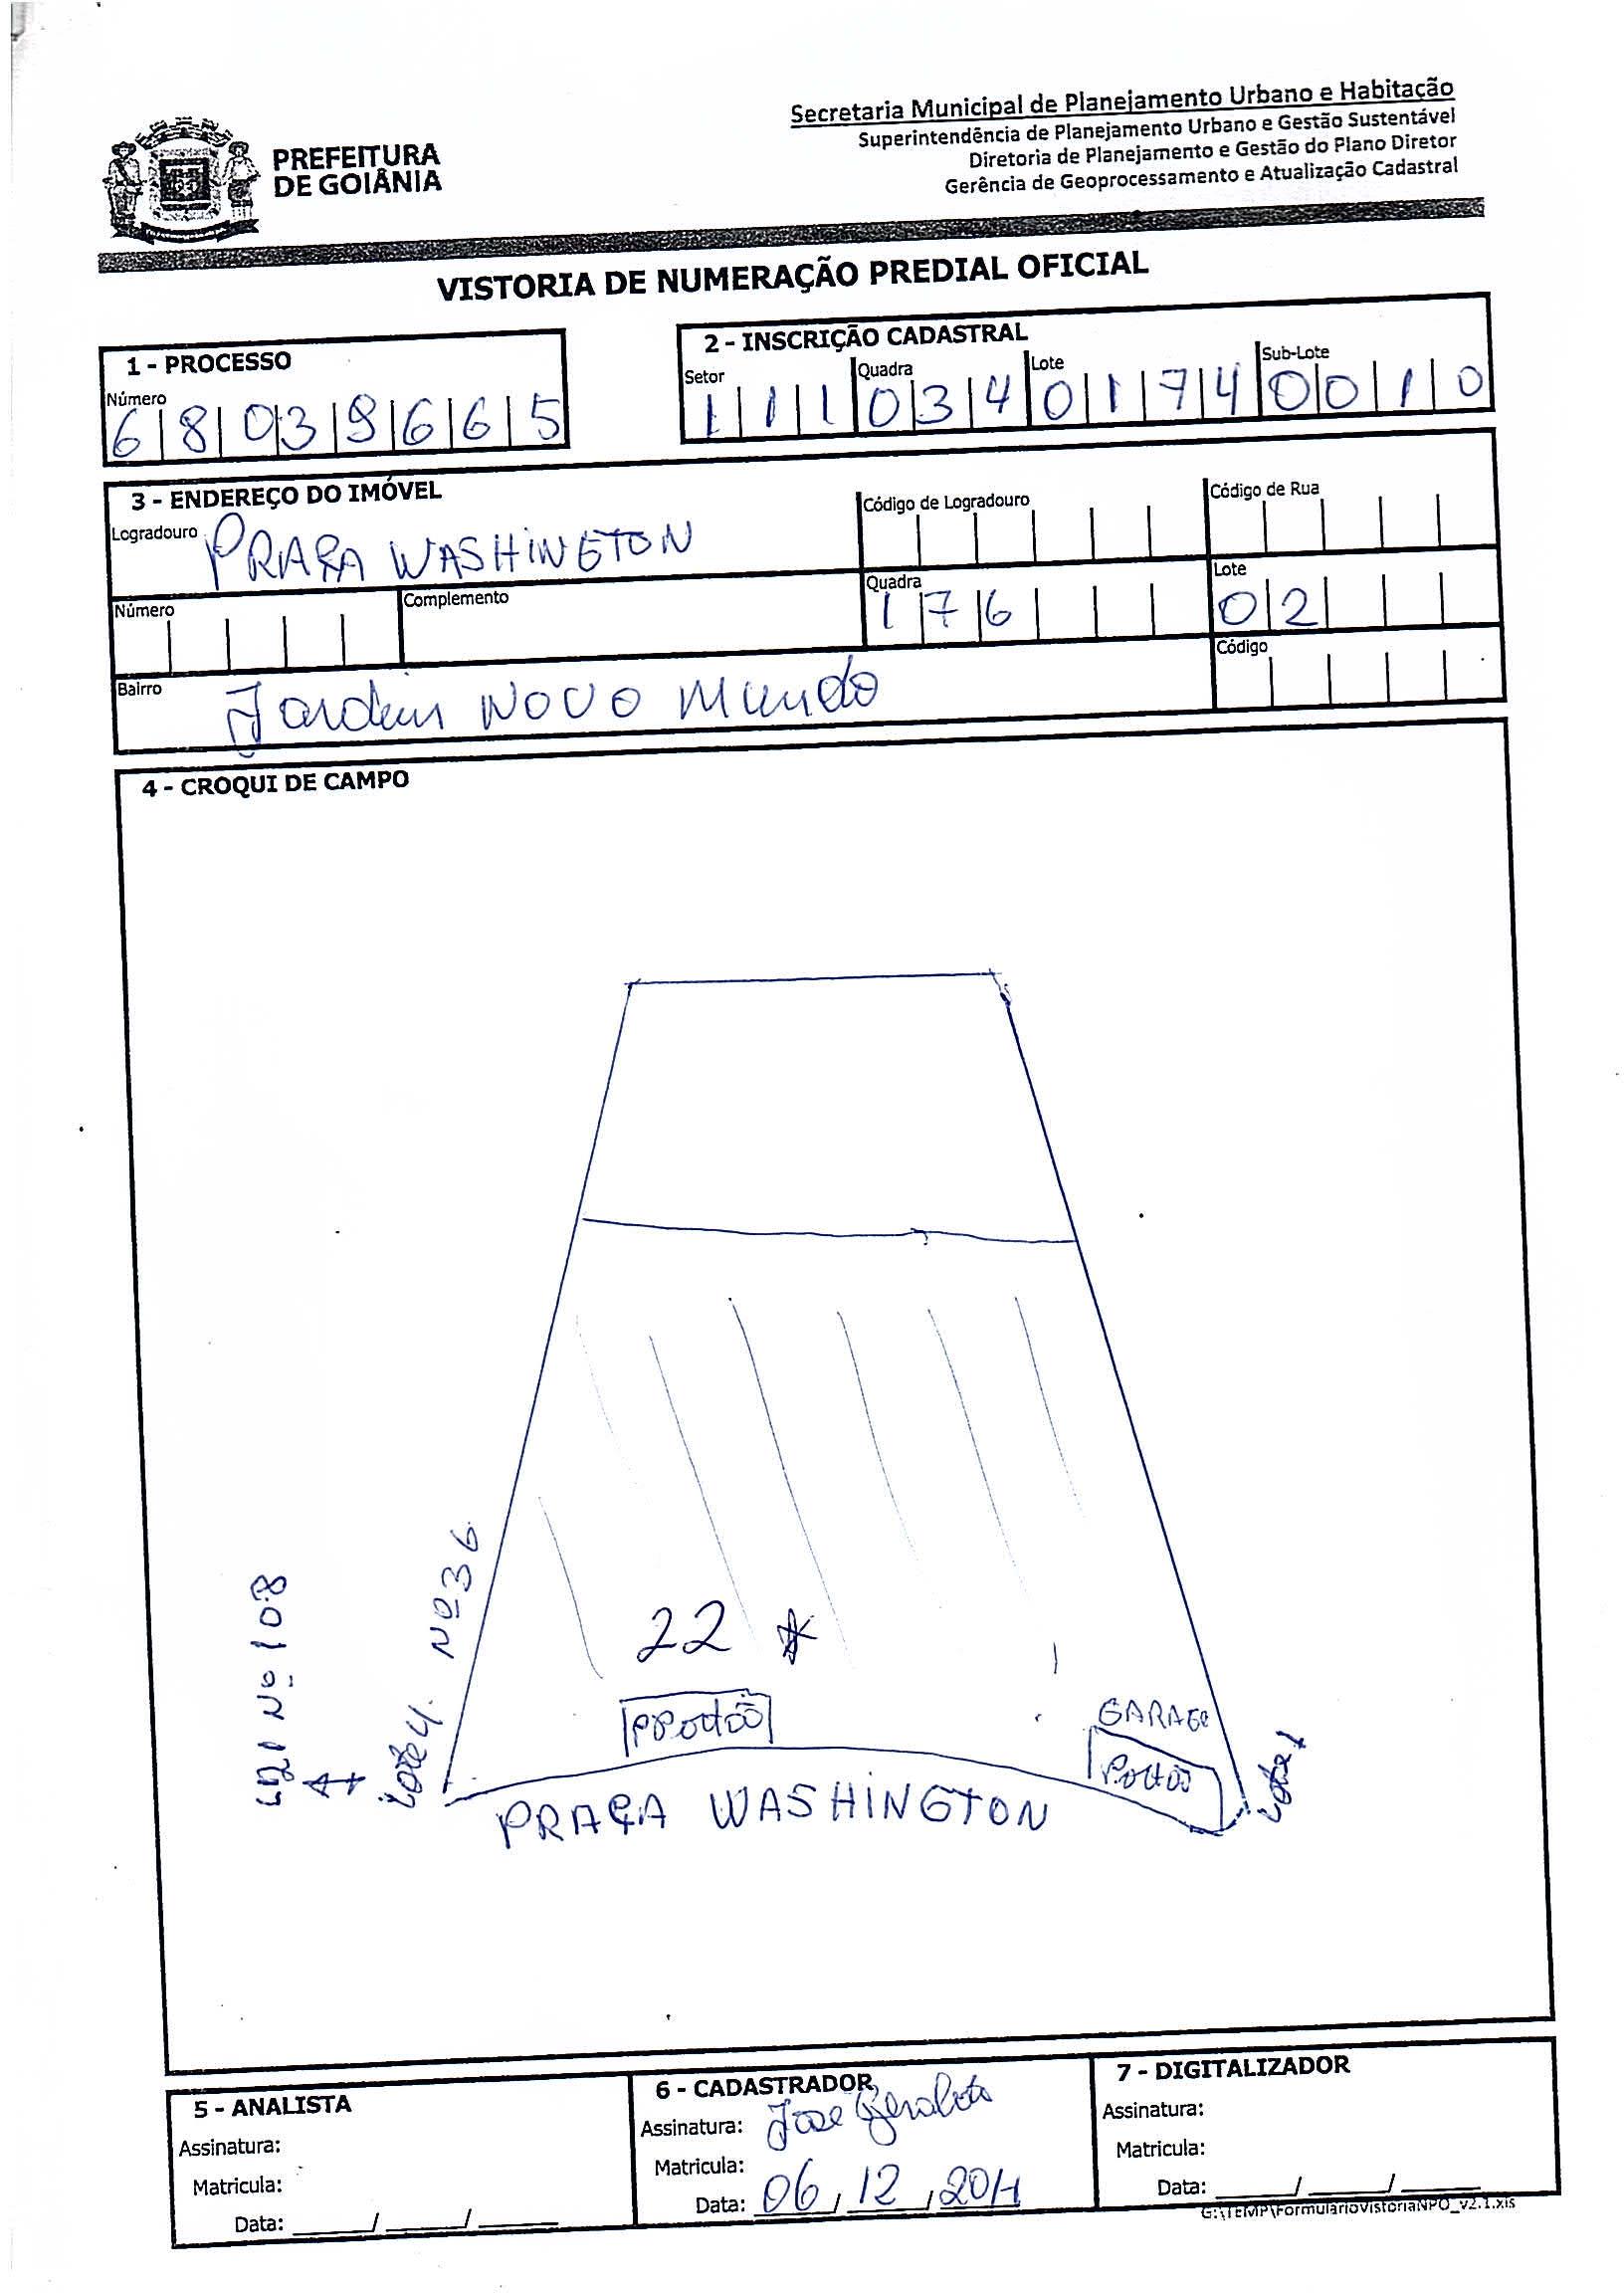 PREFEITURA
DE GOIÂNIA
Secretaria Municipal de Planejamento Urbano e Habitação
Superintendência de Planejamento Urbano e Gestão Sustentável
Diretoria de Planejamento e Gestão do Plano Diretor
Gerência de Geoprocessamento e Atualização Cadastral
VISTORIA DE NUMERAÇÃO PREDIAL OFICIAL
1 - PROCESSO
Número
68039665
2 - INSCRIÇÃO CADASTRAL
Setor Quadra Lote Sub-Lote
111 034 0174 0010
3 - ENDEREÇO DO IMÓVEL
Logradouro PRAÇA WASHINGTON Código de Logradouro Código de Rua
Número Complemento Quadra 176 Lote 02
Bairro Jardim NOVO Mundo Código
4 - CROQUI DE CAMPO
Nº 108
Lote 4 Nº 36
22 *
GARAGE
Portão
Lote 1
PRAÇA WASHINGTON
5 - ANALISTA
Assinatura:
Matricula:
Data: ____/____/____
6 - CADASTRADOR
Assinatura: Jose Geraldo
Matricula:
Data: 06/12/
7 - DIGITALIZADOR
Assinatura:
Matricula:
Data: ____/____/____
G:\TEMP\FormularioVistoriaNPO_v2.1.xls